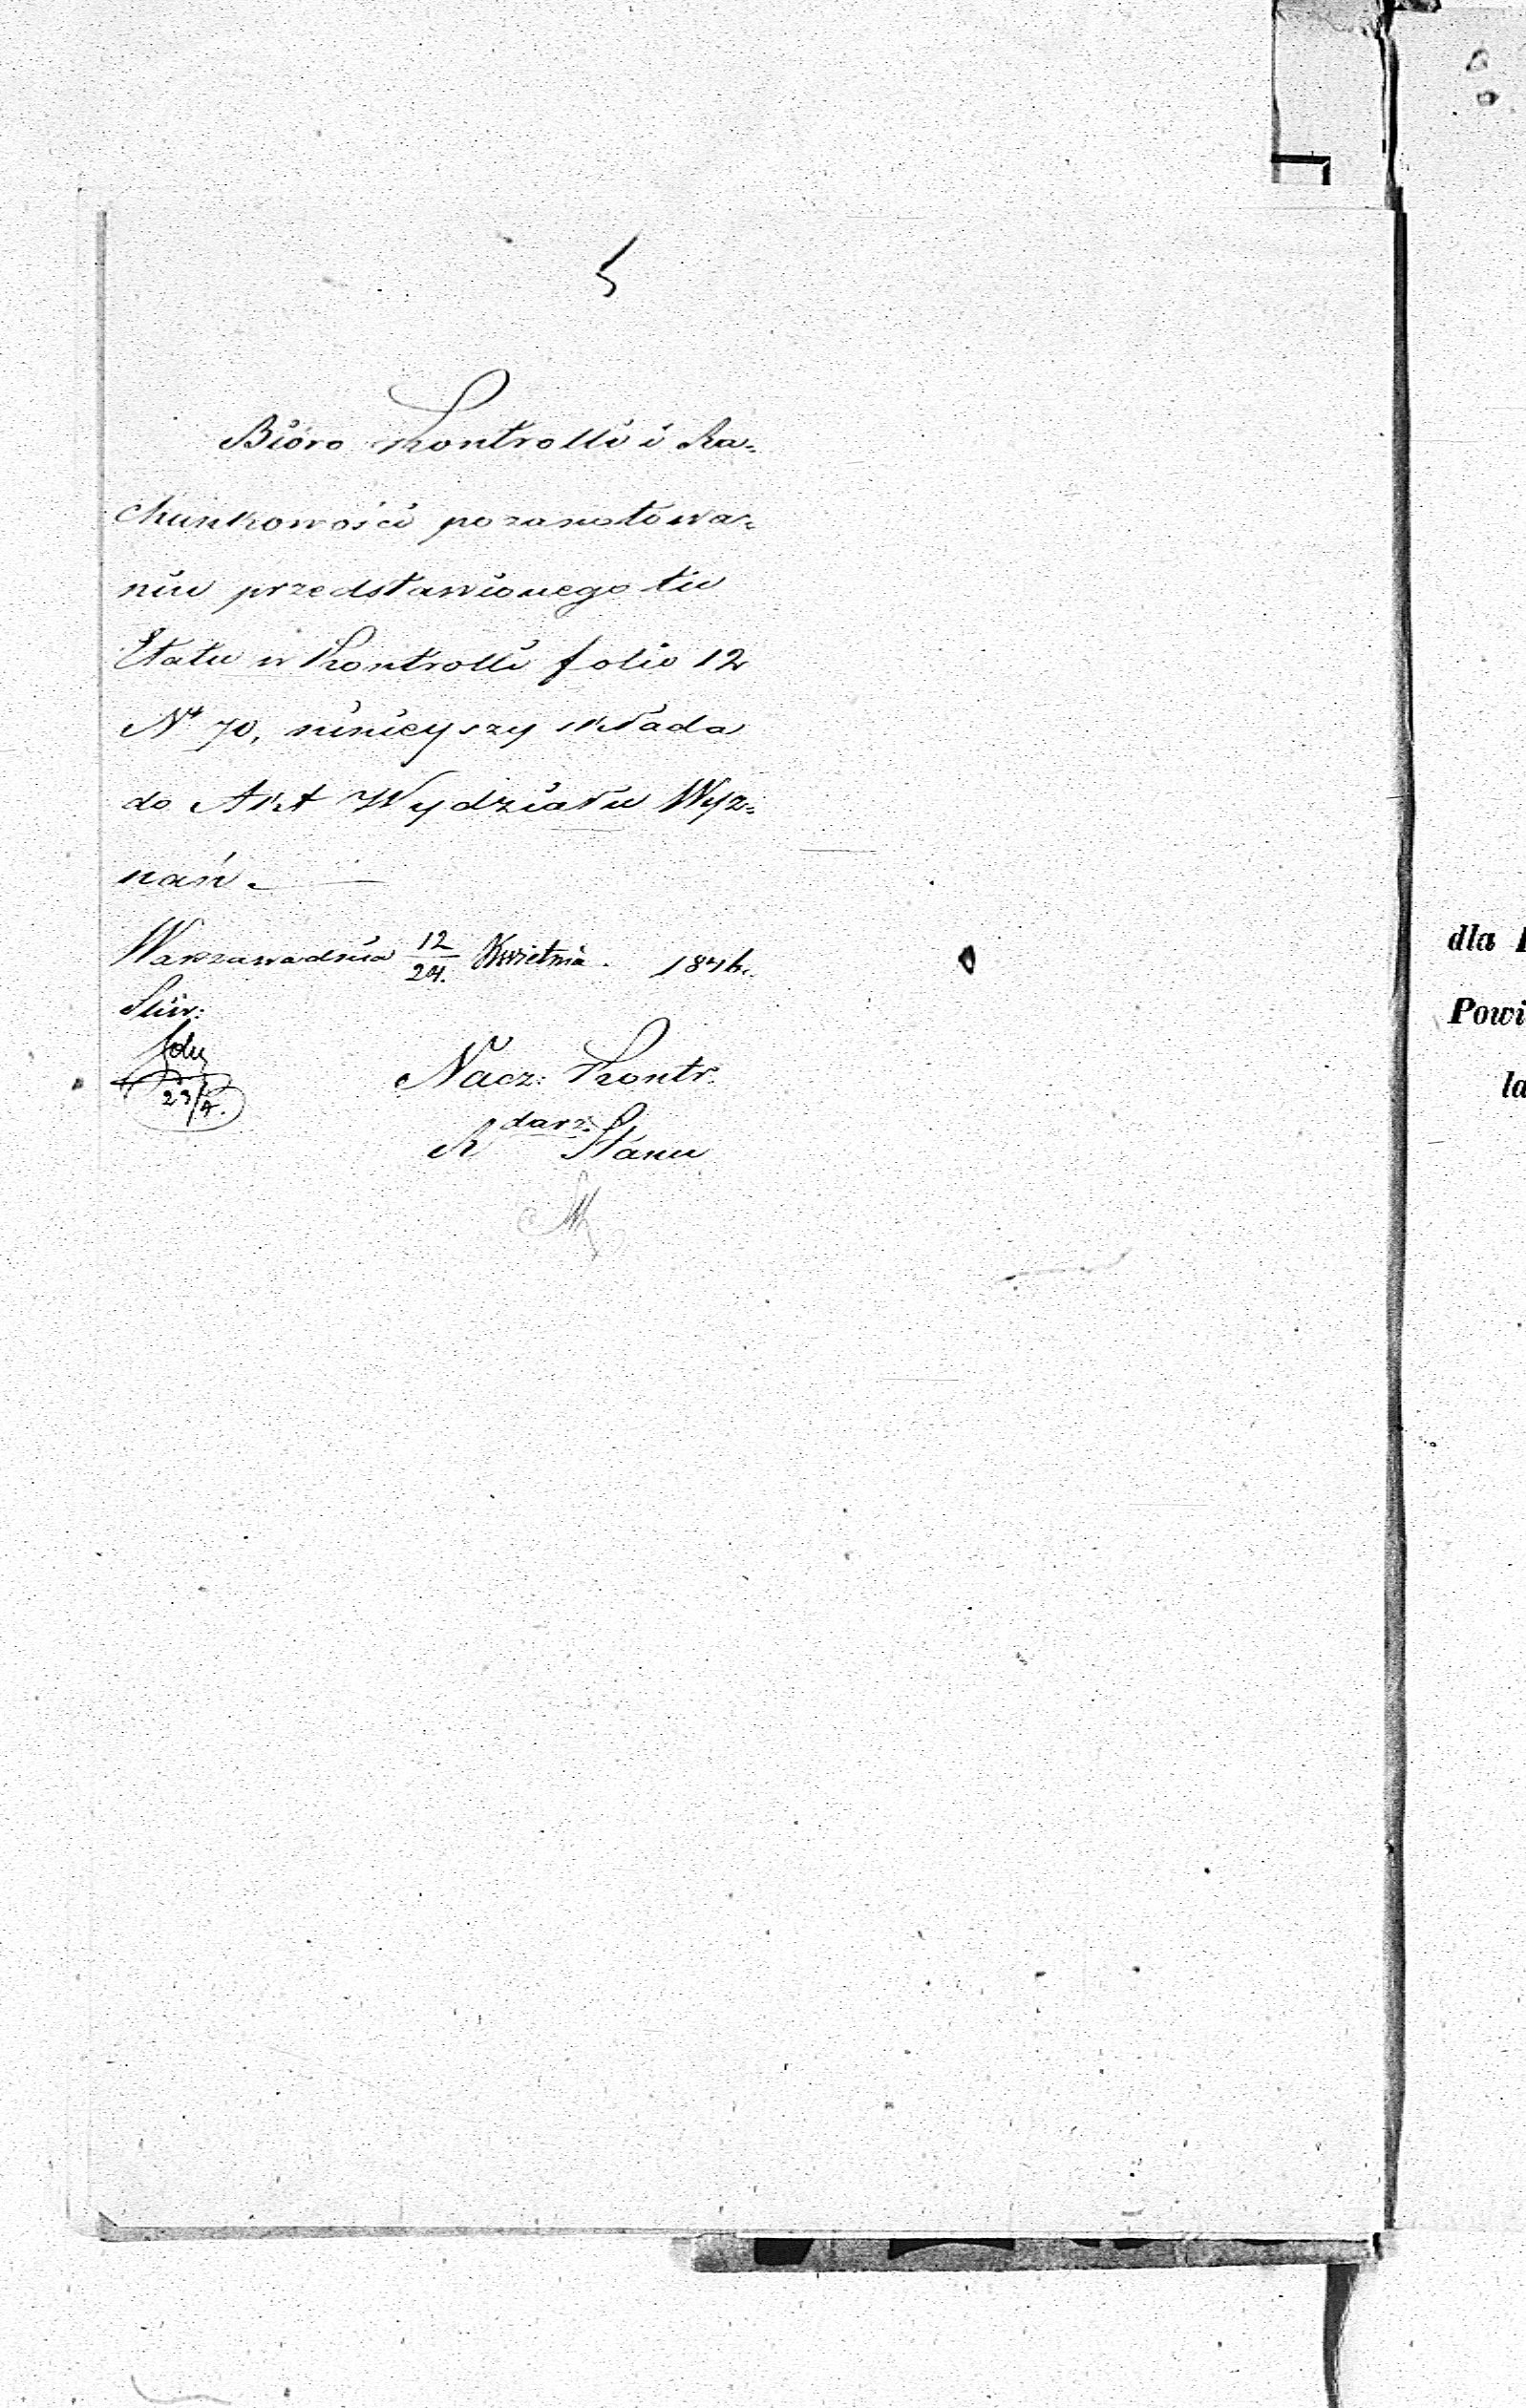 5
Bióro Kontrolli i Ra=
chunkowości po zanotowa=
niu przedstawionego tu
Etatu w Kontrolli folio 12
Nº 70, ninieyszy składa
do Akt Wydziału Wyz=
nań. —
Warszawa dnia 12/24. Kwietnia. 1846.
Nacz: Kontr:
R darz: Stanu
23/4.
dla
Powi
la